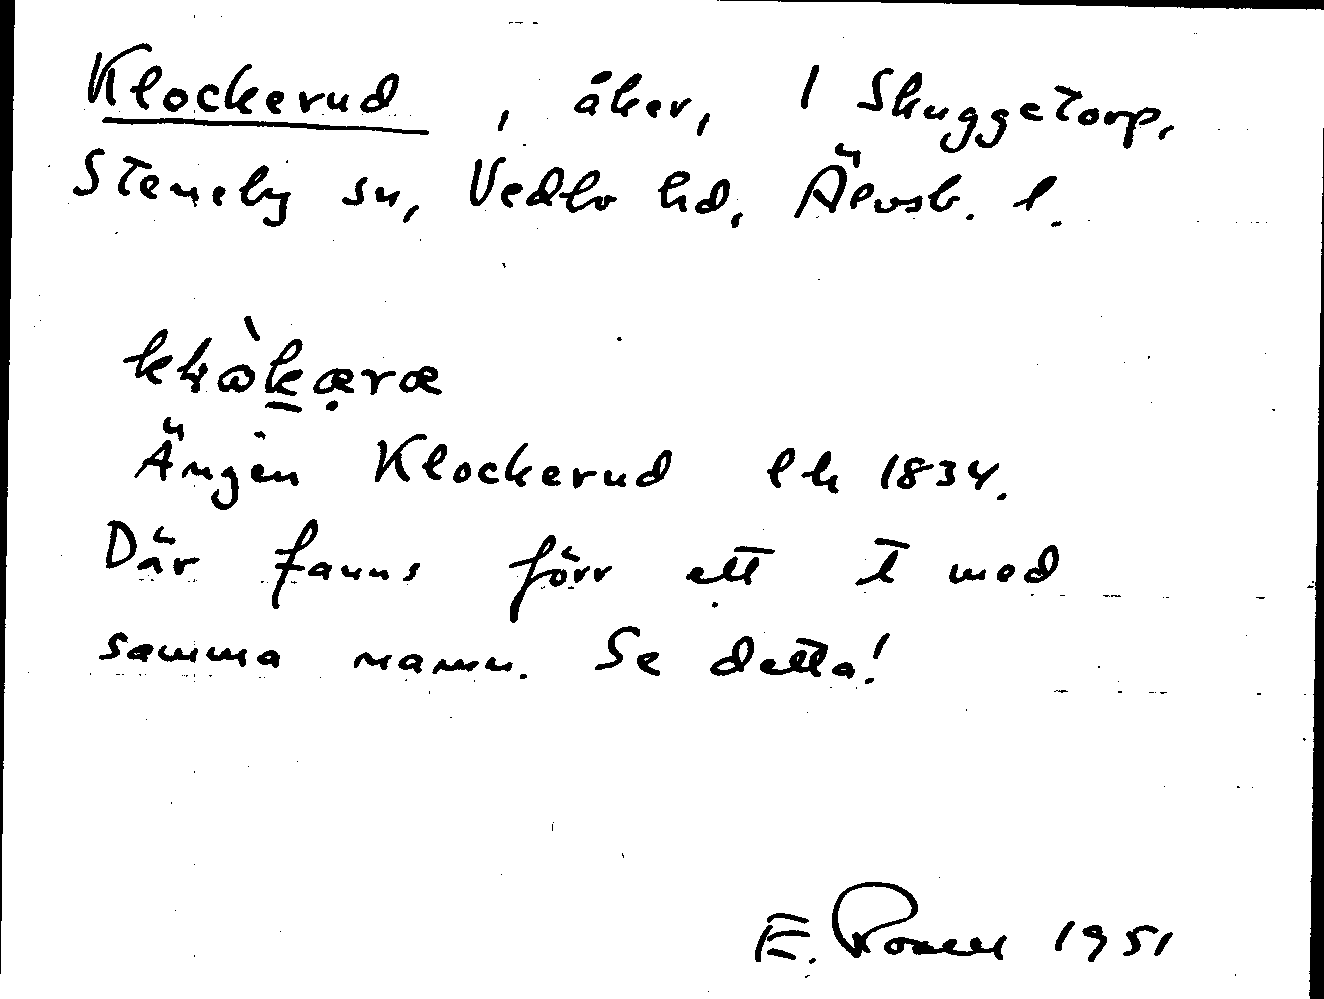 Klockerud, åker, 1 Skuggetorp,
Steneby sn, Vedbo hd, Älvsb. l.
Ängen Klockerud lh 1834.
Där fanns förr ett t med
samma namn. Se detta!
E. 1951